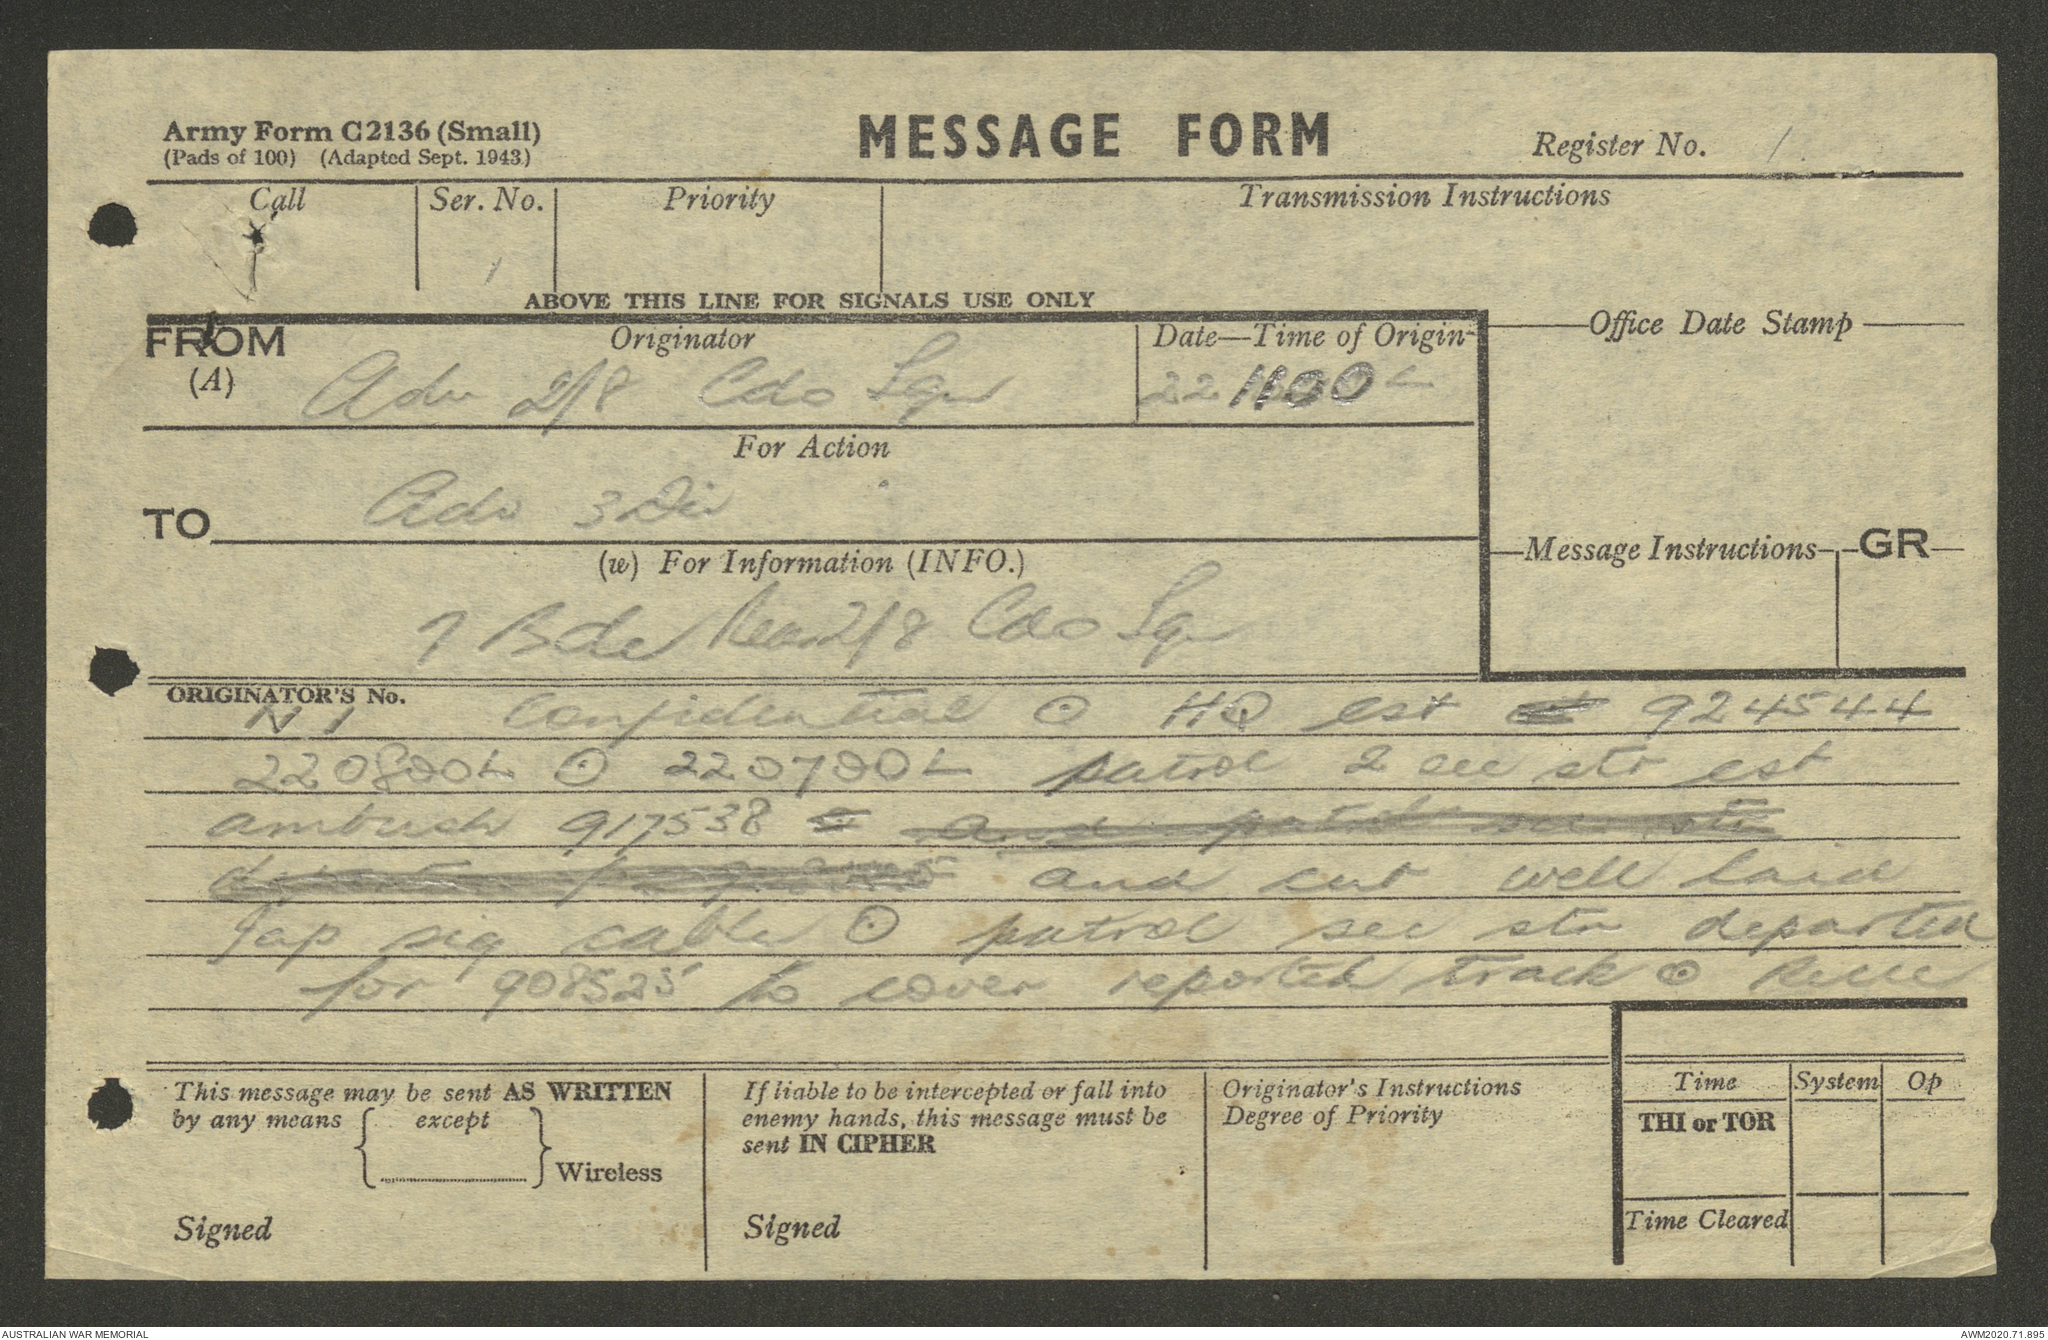 Army Form C2136 (Small)
(Pads of 100) (Adapted Sept. 1943)
MESSAGE FORM
Register No. 1.
Call
Ser. No.
Priority
Transmission Instructions
1
ABOVE THIS LINE FOR SIGNALS USE ONLY
FROM
(A)
Originator
Date—Time of Origin
Office Date Stamp
Adv 2/8 Cdo Sqn
22 1100 L
For Action
TO
Adv 3 Div
(w) For Information (INFO.)
Message Instructions
GR
7 Bde Rear 2/8 Cdo Sqn
ORIGINATOR'S No.
N 1 Confidential ⊙ HQ est 924544
220800L ⊙ 220700L patrol 2 sec str est
ambush 917538 and patrol sec str
and cut well laid
Jap sig cable ⊙ patrol sec str departed
for 908525 to cover reported track ⊙
This message may be sent AS WRITTEN
by any means { except } Wireless
Signed
If liable to be intercepted or fall into
enemy hands, this message must be
sent IN CIPHER
Signed
Originator's Instructions
Degree of Priority
Time
System
Op
THI or TOR
Time Cleared
AUSTRALIAN WAR MEMORIAL
AWM2020.71.895